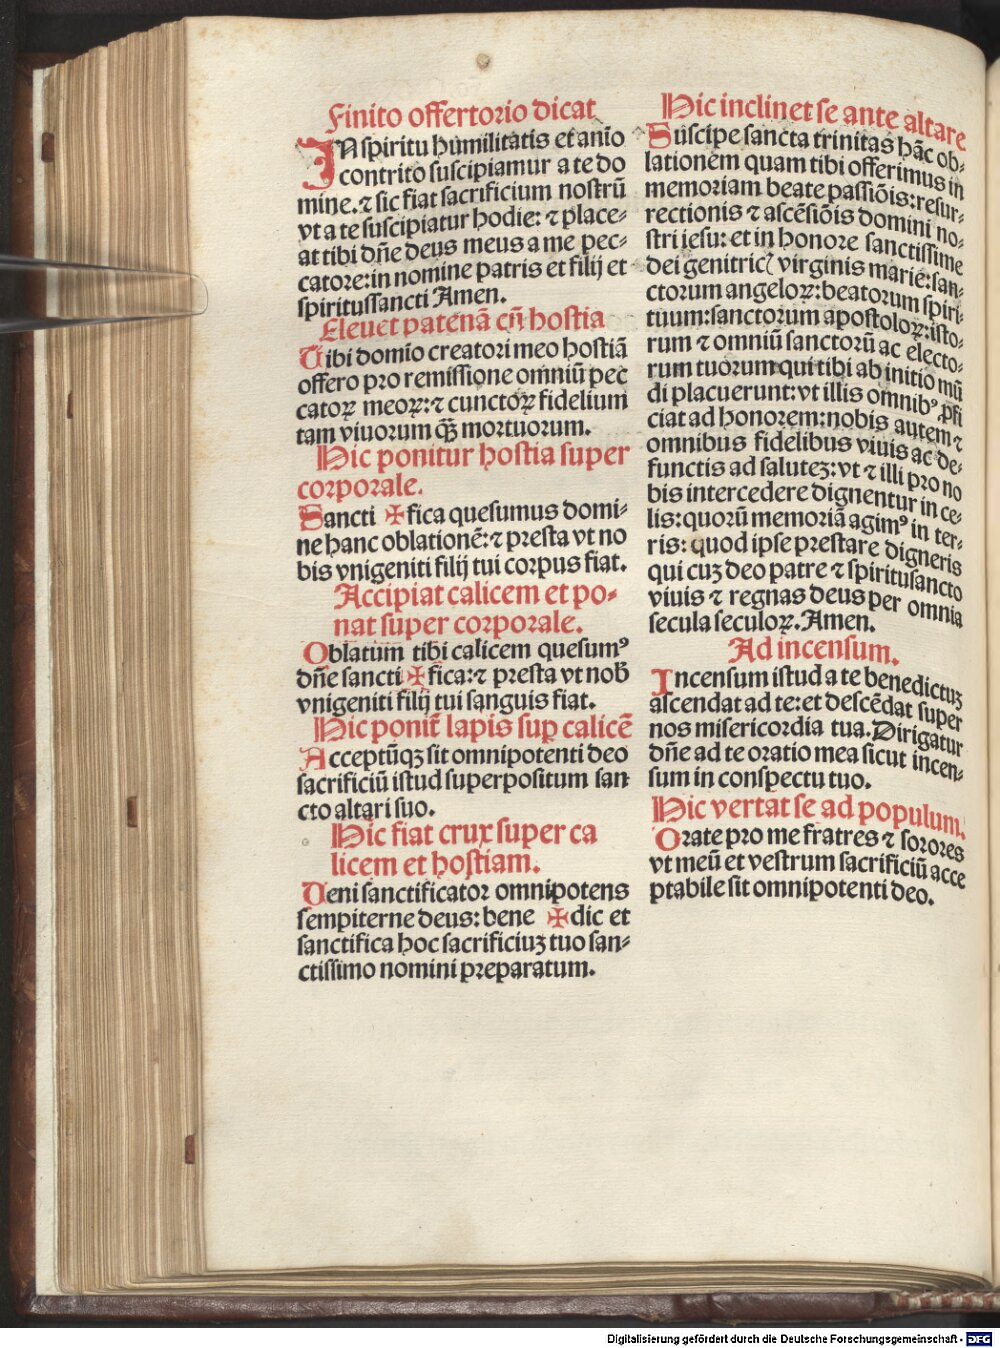 Finito offertorio dicat
IN spiritu humilitatis et anīo
contrito suscipiamur a te do
mine. ⁊ sic fiat sacrificium nostrū
vt a te suscipiatur hodie: ⁊ place⸗
at tibi dn̄e deus meus a me pec⸗
catore: in nomine patris et filij et
spiritussancti Amen.
Eleuet patenā cū hostia
Tibi domīo creatori meo hostiā
offero pro remissione omniū pec
catoꝝ meoꝝ: ⁊ cunctoꝝ fidelium
tam viuorum qꝫ̄ mortuorum.
Hic ponitur hostia super
corporale.
Sancti ✠ fica quesumus domi⸗
ne hanc oblationē: ⁊ presta vt no
bis vnigeniti filij tui corpus fiat.
Accipiat calicem et po⸗
nat super corporale.
Oblatum tibi calicem quesumꝰ
dn̄e sancti ✠ fica: ⁊ presta vt nob̄
vnigeniti filij tui sanguis fiat.
Hic poniť lapis suꝑ calicē
Acceptūqꝫ sit omnipotenti deo
sacrificiū istud superpositum san
cto altari suo.
Hic fiat crux super ca
licem et hostiam.
Veni sanctificator omnipotens
sempiterne deus: bene ✠ dic et
sanctifica hoc sacrificiuꝫ tuo san⸗
ctissimo nomini preparatum.
Hic inclinet se ante altare
Suscipe sancta trinitas hāc ob⸗
lationem quam tibi offerimus in
memoriam beate passiōis: resur⸗
rectionis ⁊ ascēsiōis domini no⸗
stri iesu: et in honore sanctissime
dei genitricꝭ virginis marie: san⸗
ctorum angeloꝝ: beatorum spiri⸗
tuum: sanctorum apostoloꝝ: isto⸗
rum ⁊ omniū sanctorū ac electo⸗
rum tuorum qui tibi ab initio mū
di placuerunt: vt illis omnibꝰ ꝓfi
ciat ad honorem: nobis autem ⁊
omnibus fidelibus viuis ac de⸗
functis ad saluteꝫ: vt ⁊ illi pro no
bis intercedere dignentur in ce⸗
lis: quorū memoriā agimꝰ in ter⸗
ris: quod ipse prestare digneris
qui cuꝫ deo patre ⁊ spiritusancto
viuis ⁊ regnas deus per omnia
secula seculoꝝ. Amen.
Ad incensum.
Incensum istud a te benedictuꝫ
ascendat ad te: et descēdat super
nos misericordia tua. Dirigatur
dn̄e ad te oratio mea sicut incen⸗
sum in conspectu tuo.
Hic vertat se ad populum.
Orate pro me fratres ⁊ sorores
vt meū et vestrum sacrificiū acce
ptabile sit omnipotenti deo.
Digitalisierung gefördert durch die Deutsche Forschungsgemeinschaft - DFG